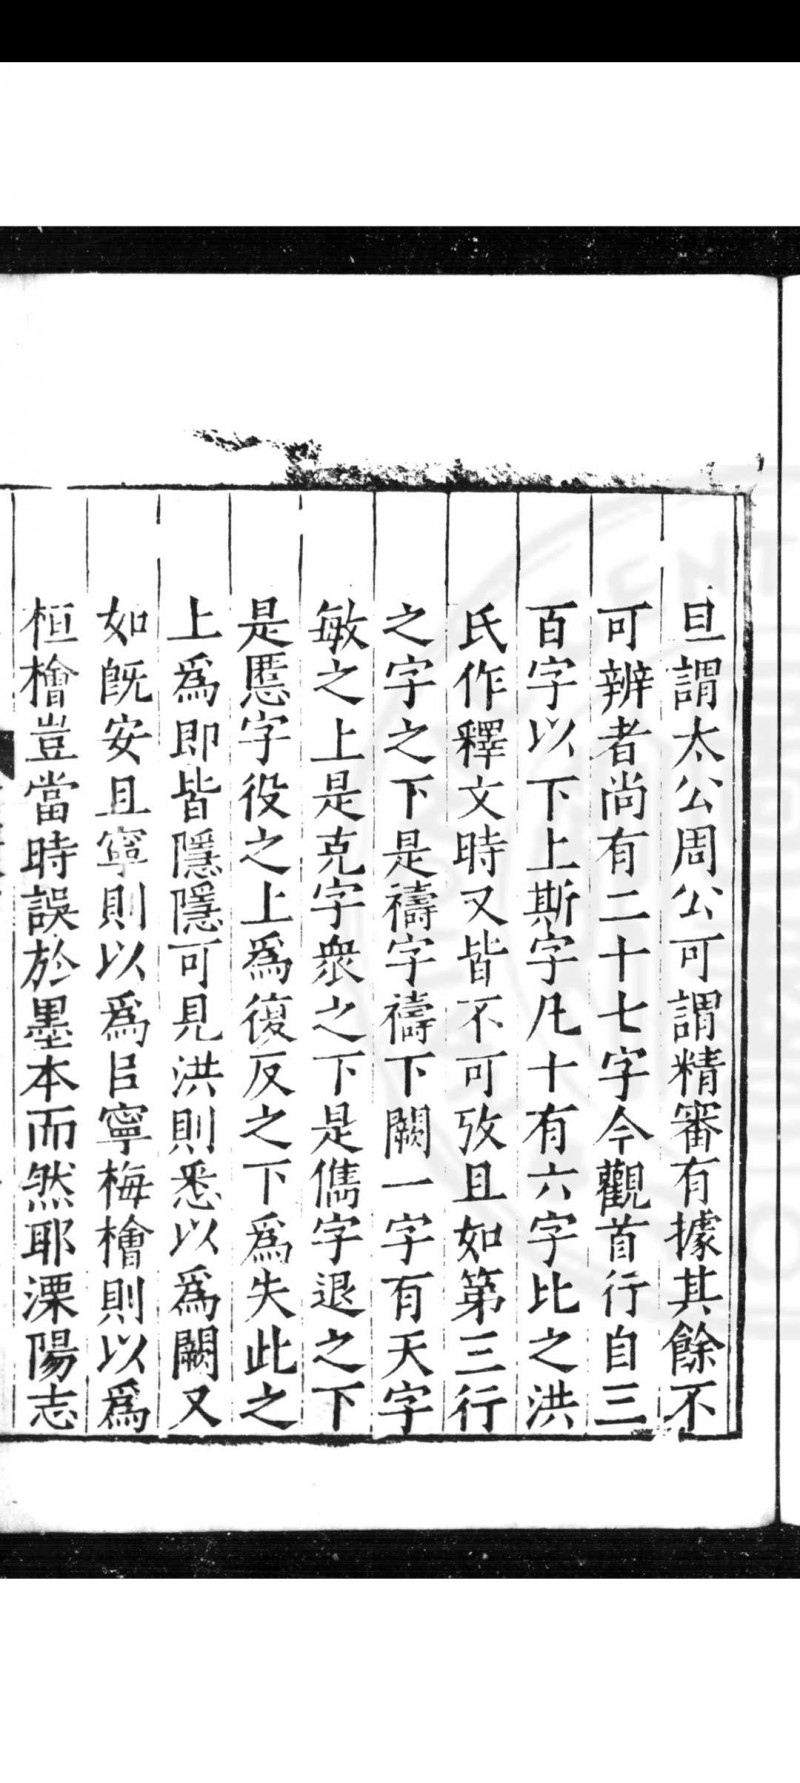 旦謂太公周公可謂精審有據其餘不
可辨者尚有二十七字今觀首行自三
百字以下上斯字凡十有六字比之洪
氏作釋文時又皆不可攷且如第三行
之字之下是禱字禱下闕一字有天字
敏之上是克字衆之下是儁字退之下
是慝字役之上為復反之下為失此之
上爲即皆隱隱可見洪則悉以爲闕又
如旣安且寧則以爲㠯寧梅檜則以爲
桓檜豈當時誤於墨本而然耶溧陽志